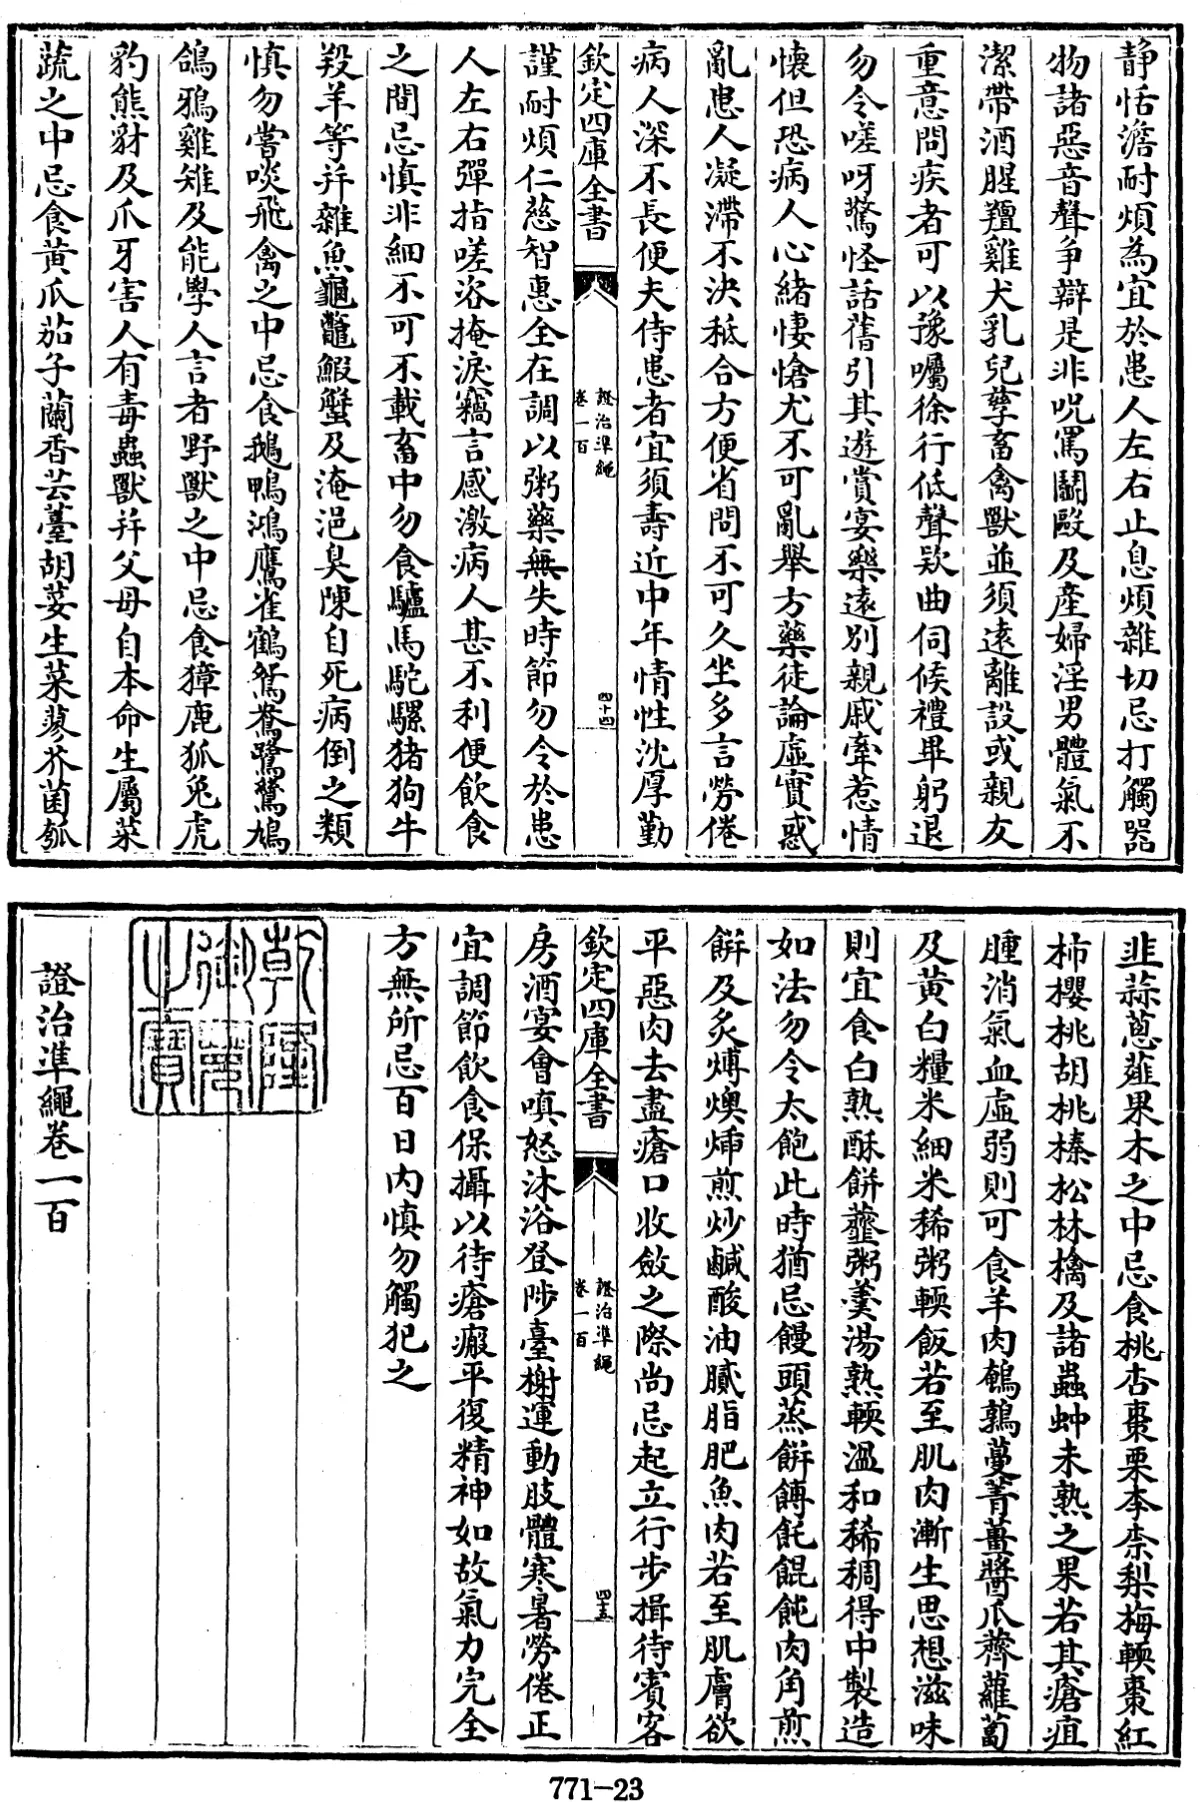 静恬澹耐煩為宜於患人左右止息煩雜切忌打觸器
物諸惡音聲争辯是非呪罵鬭毆及産婦淫男體氣不
潔帶酒腥羶雞犬乳兒孳畜禽獸並須遠離設或親友
重意問疾者可以豫囑徐行低聲欵曲伺候禮畢躬退
勿令嗟呀驚怪話舊引其遊賞宴樂遠別親戚牽惹情
懐但恐病人心緒悽愴尤不可亂舉方藥徒論虛實惑
亂患人凝滯不決秪合方便省問不可久坐多言勞倦
病人深不長便夫侍患者宜須壽近中年情性沈厚勤
欽定四庫全書
證治準繩
卷一百
四十四
謹耐煩仁慈智惠全在調以粥藥無失時節勿令於患
人左右彈指嗟咨掩淚竊言感激病人甚不利便飲食
之間忌慎非細不可不載畜中勿食驢馬駝騾猪狗牛
羖羊等并雜魚龜鼈鰕蟹及淹浥臭陳自死病倒之類
慎勿嘗啖飛禽之中忌食鵝鴨鴻鷹雀鶴鴛鴦鷺鷥鳩
鴿鴉雞雉及能學人言者野獸之中忌食獐鹿狐兎虎
豹熊豺及爪牙害人有毒蟲獸并父母自本命生屬菜
蔬之中忌食黄瓜茄子蘭香芸薹胡荽生菜蓼芥菌瓠
韭蒜蔥薤果木之中忌食桃杏棗栗李柰梨梅輭棗紅
柿櫻桃胡桃榛松林檎及諸蟲蚛未熟之果若其瘡疽
腫消氣血虛弱則可食羊肉鵪鶉蔓菁薑醬瓜虀蘿蔔
及黄白糧米細米稀粥輭飯若至肌肉漸生思想滋味
則宜食白熟酥餅虀粥羹湯熟輭溫和稀稠得中製造
如法勿令太飽此時猶忌饅頭蒸餅餺飥餛飩肉角煎
餅及炙煿燠煿煎炒鹹酸油膩脂肥魚肉若至肌膚欲
平惡肉去盡瘡口收斂之際尚忌起立行步揖待賓客
欽定四庫全書
證治準繩
卷一百
四十五
房酒宴會嗔怒沐浴登陟臺榭運動肢體寒暑勞倦正
宜調節飲食保攝以待瘡瘢平復精神如故氣力完全
方無所忌百日内慎勿觸犯之
乾隆御覽之寶
證治準繩卷一百
771-23